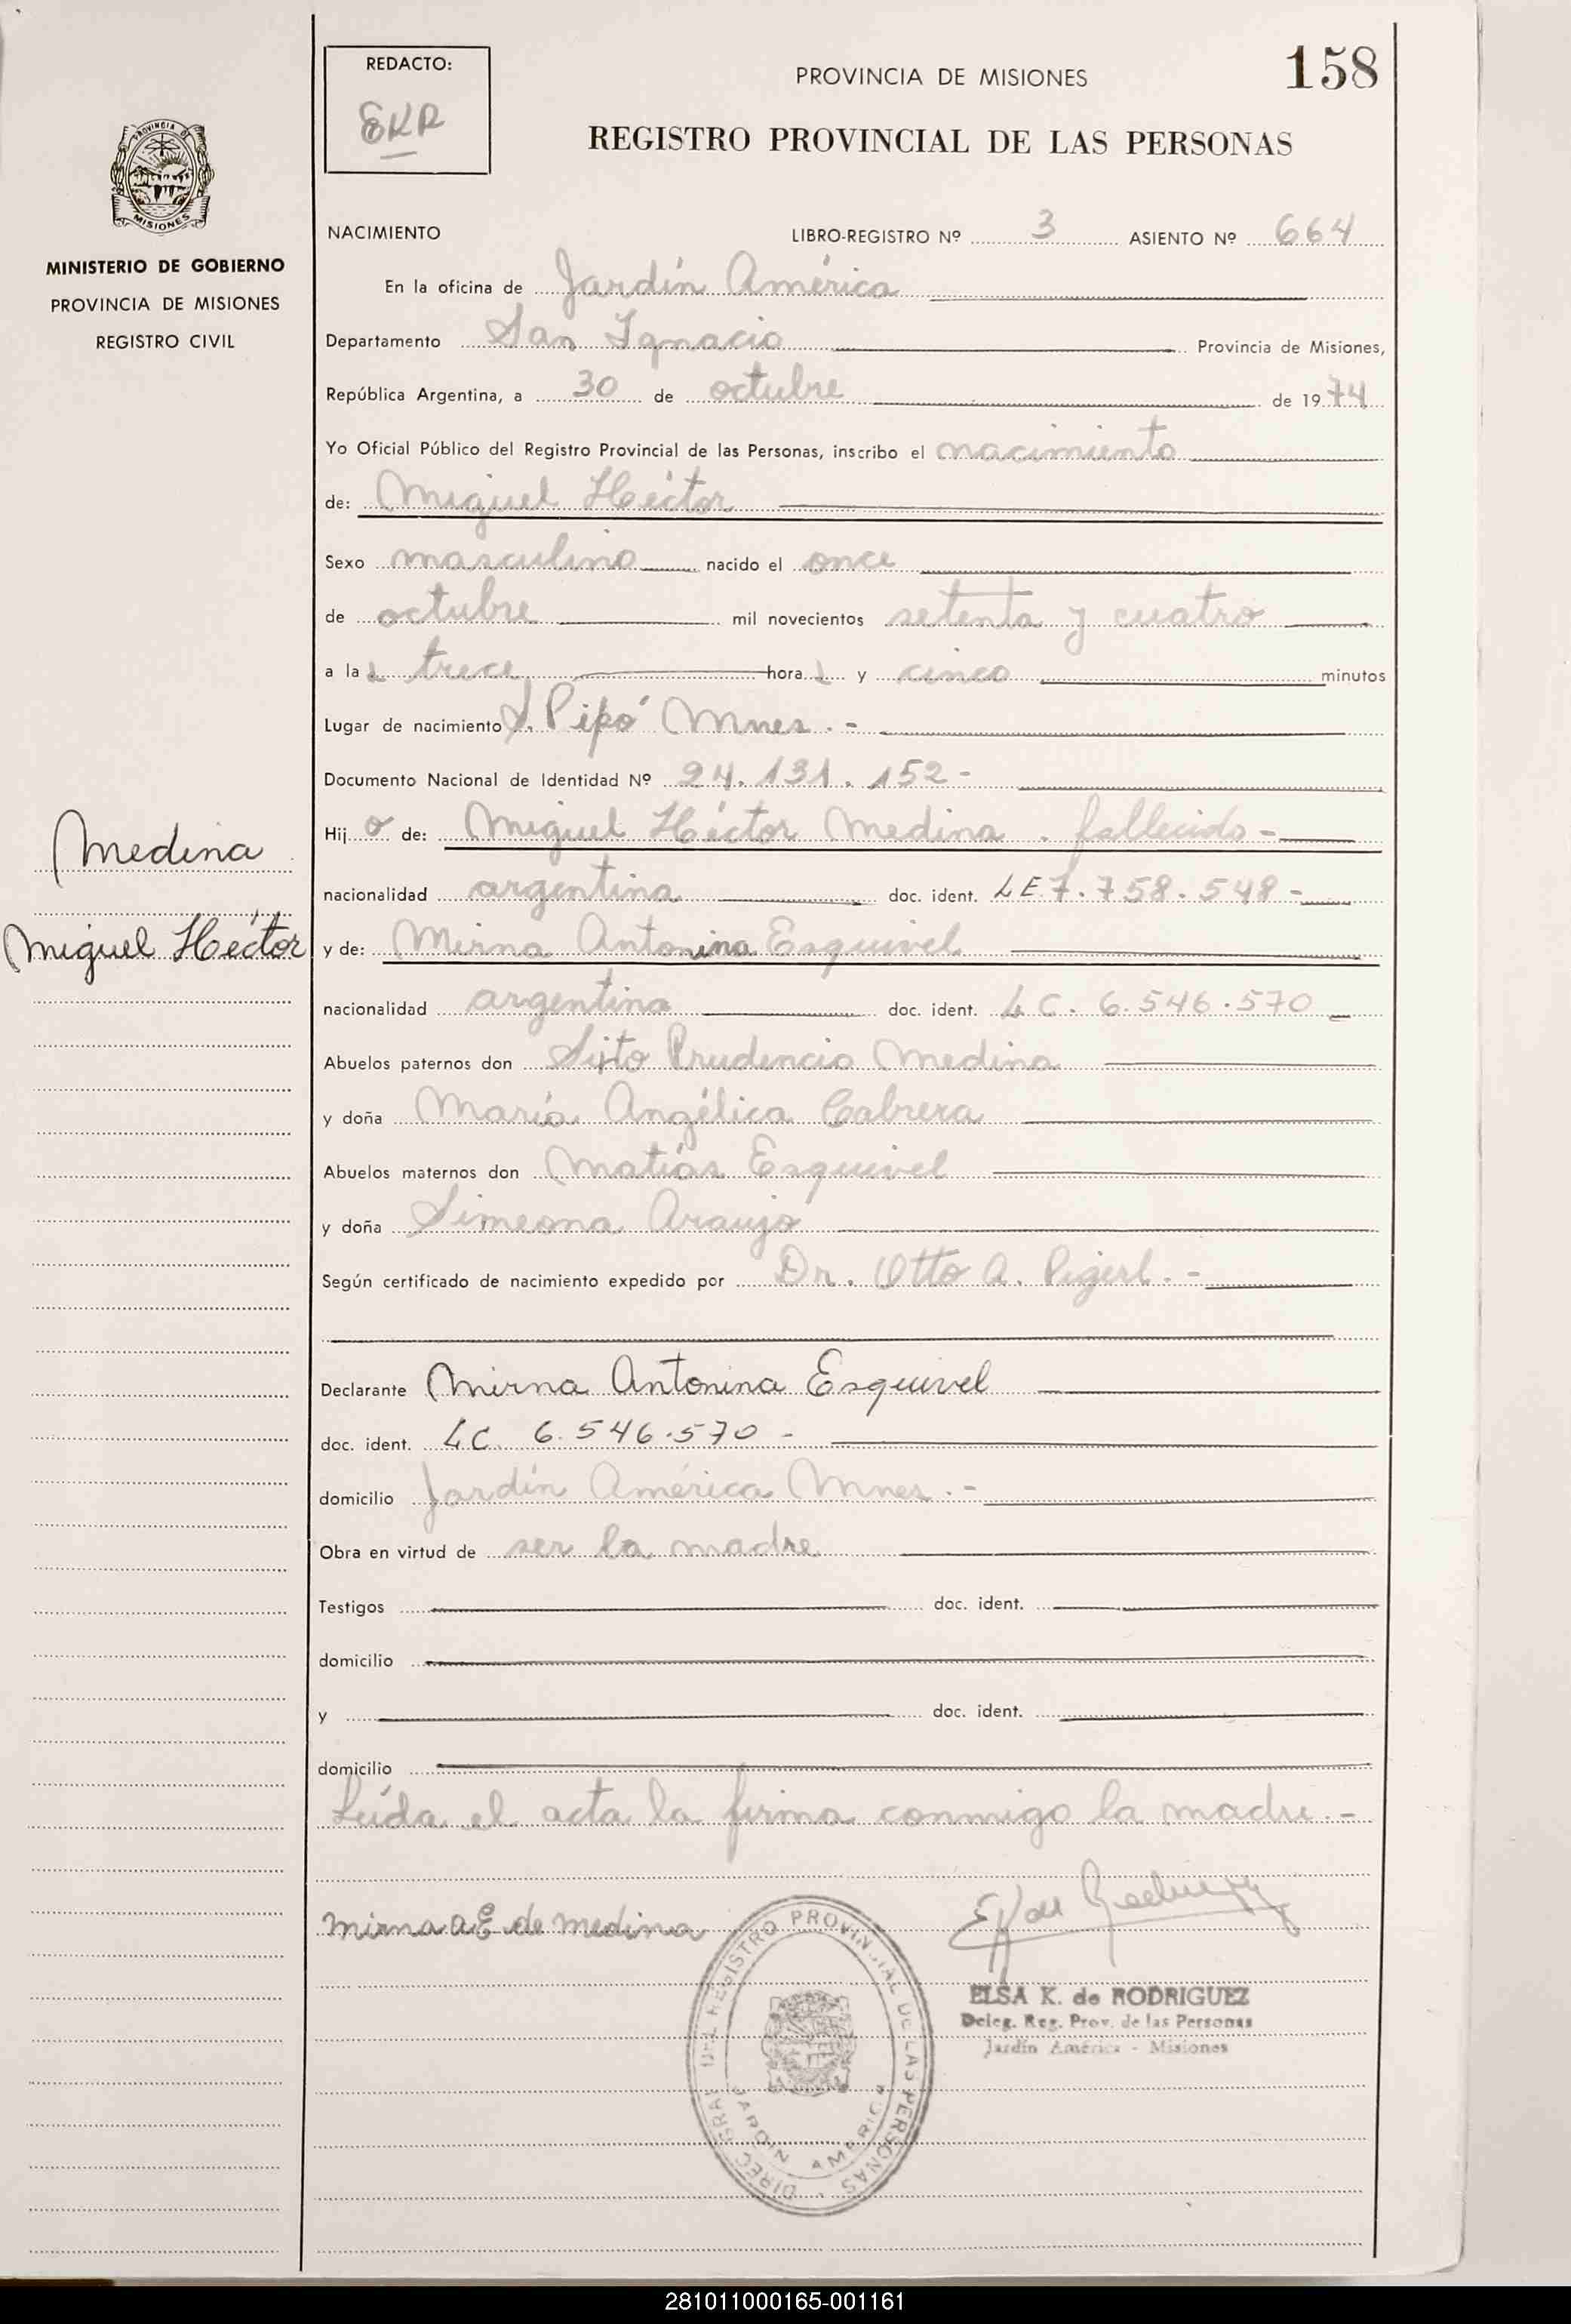 158
REDACTO:
EKR
PROVINCIA DE MISIONES
REGISTRO PROVINCIAL DE LAS PERSONAS
PROVINCIA DE
MISIONES
MINISTERIO DE GOBIERNO
PROVINCIA DE MISIONES
REGISTRO CIVIL
Medina
Miguel Héctor
NACIMIENTO LIBRO-REGISTRO Nº 3 ASIENTO Nº 664
En la oficina de Jardín América
Departamento San Ignacio Provincia de Misiones,
República Argentina, a 30 de octubre de 1974
Yo Oficial Público del Registro Provincial de las Personas, inscribo el nacimiento
de: Miguel Héctor
Sexo masculino nacido el once
de octubre mil novecientos setenta y cuatro
a las trece horas y cinco minutos
Lugar de nacimiento S. Pipó Mnes. -
Documento Nacional de Identidad Nº 24.131.152-
Hijo de: Miguel Héctor Medina. fallecido-
nacionalidad argentina doc. ident. LE 7.758.548-
y de: Mirna Antonina Esquivel
nacionalidad argentina doc. ident. LC. 6.546.570
Abuelos paternos don Sixto Prudencio Medina
y doña María Angélica Cabrera
Abuelos maternos don Matías Esquivel
y doña Simeona Araujo
Según certificado de nacimiento expedido por Dr. Otto A. Pigerl. -
Declarante Mirna Antonina Esquivel
doc. ident. LC. 6.546.570 -
domicilio Jardín América Mnes. -
Obra en virtud de ser la madre
Testigos doc. ident.
domicilio
y doc. ident.
domicilio
Leída el acta la firma conmigo la madre.-
Mirna A E de Medina
DIREC. GRAL. DEL REGISTRO PROVINCIAL DE LAS PERSONAS
JARDIN AMERICA
ELSA K. de RODRIGUEZ
Deleg. Reg. Prov. de las Personas
Jardín América - Misiones
281011000165-001161